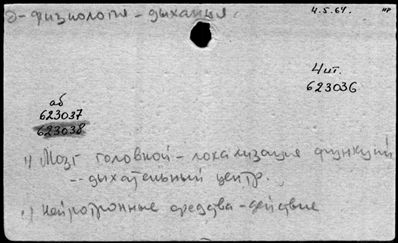 Э-физиология-дыхания. 4.5.61. нр
4 ит.
623036
аб
623037
623038
1) Мозг головной-локализация функций
--дыхательный центр.
2) Нейротропные средства-действие